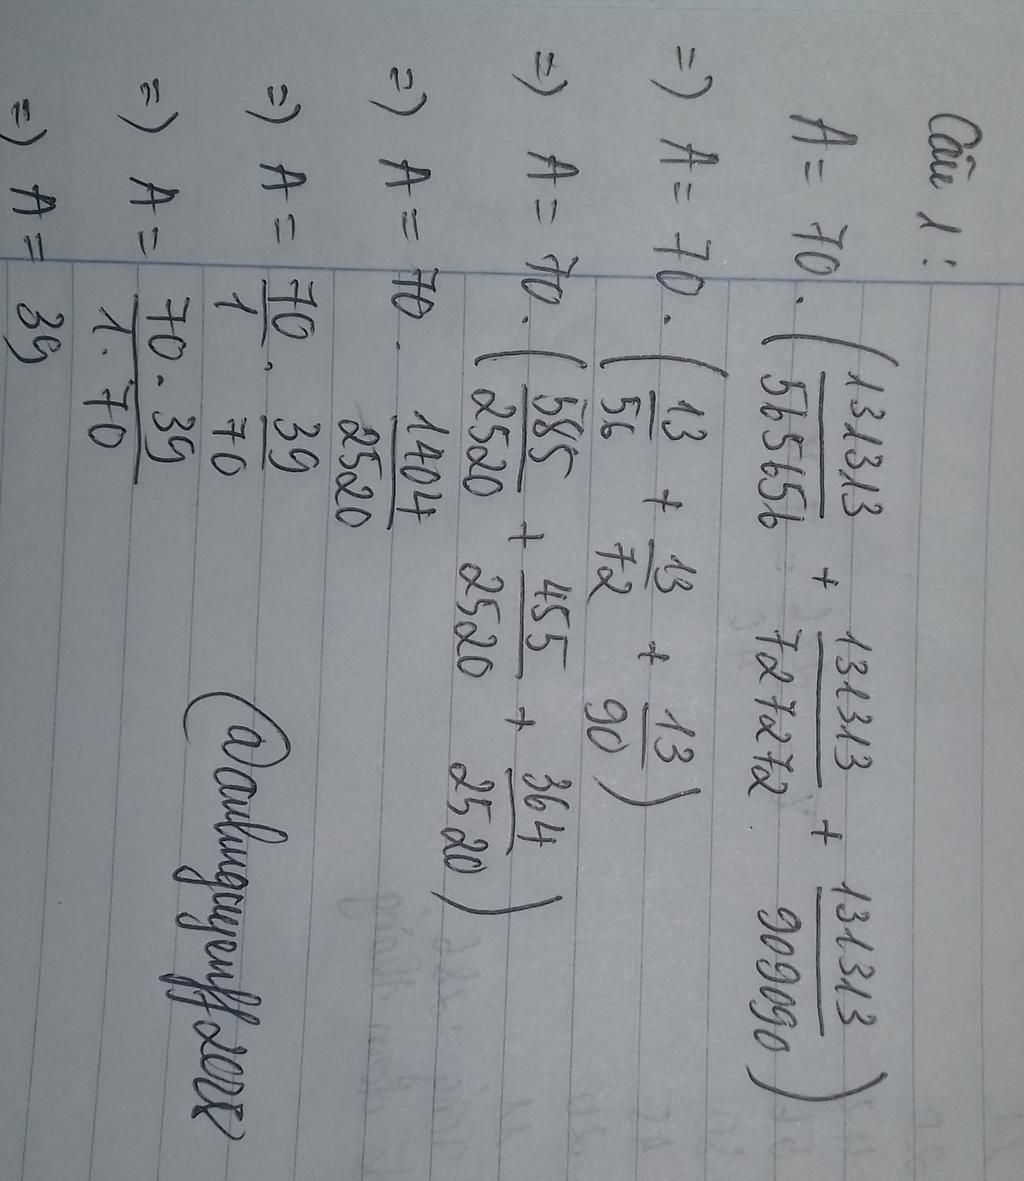 Câu 1:
A = 70 . (131313/565656 + 131313/727272 + 131313/909090)
=) A = 70 . (13/56 + 13/72 + 13/90)
=) A = 70 . (585/2520 + 455/2520 + 364/2520)
=) A = 70 . 1404/2520
=) A = 70/1 . 39/70
=) A = 70 . 39/1 . 70
=) A = 39